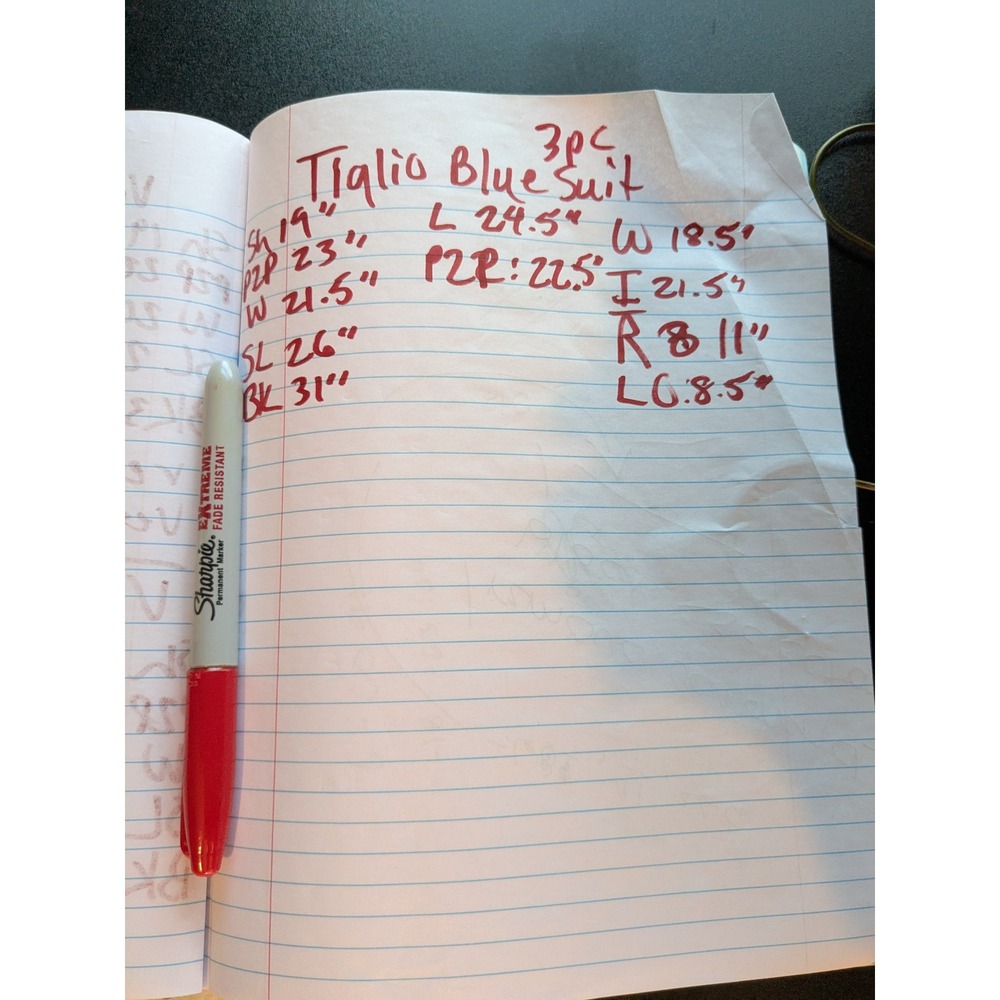 3pc
Tiglio Blue Suit
Sh 19"
P2P 23"
W 21.5"
SL 26"
BK 31"
L 24.5"
P2P: 22.5"
W 18.5"
I 21.5"
R 11"
LO: 8.5"
Sharpie. EXTREME
Permanent Marker FADE RESISTANT